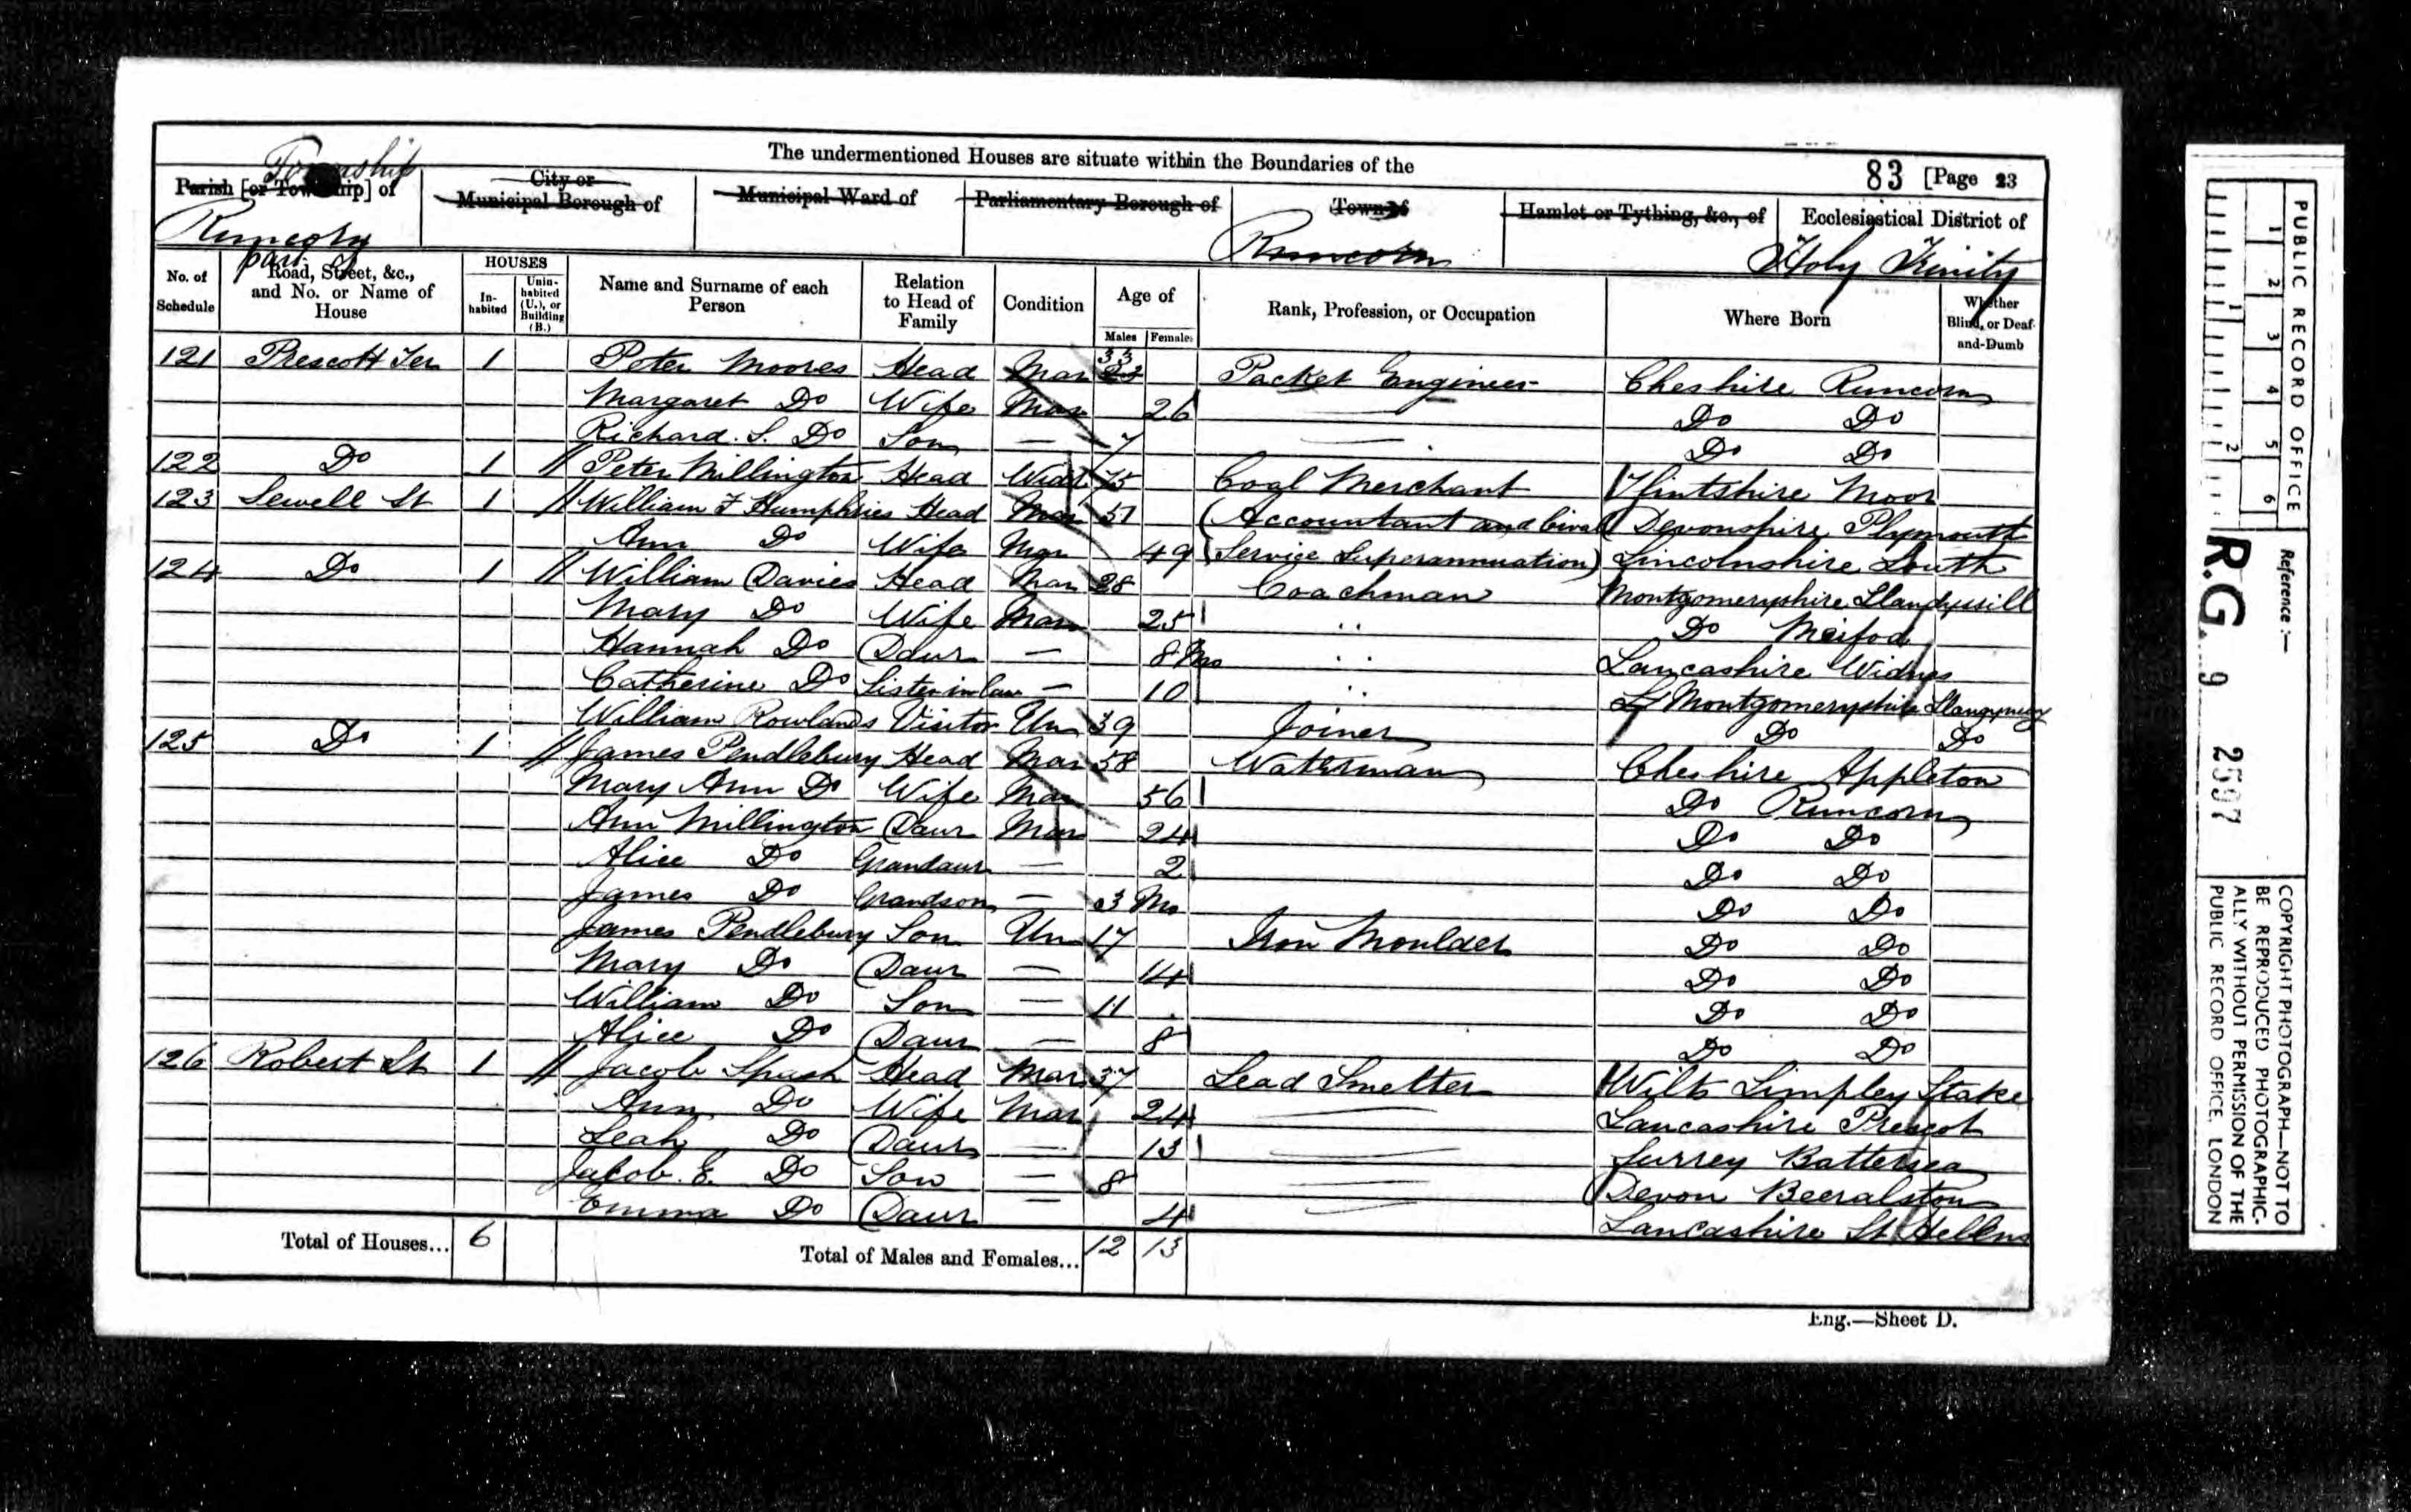 The undermentioned Houses are situate within the Boundaries of the
83 [Page 23
Township
Parish [or Township] of
City or Municipal Borough of
Municipal Ward of
Parliamentary Borough of
Town of
Hamlet or Tything, &c., of
Ecclesiastical District of
Runcorn part of
Runcorn
Holy Trinity
No. of Schedule
Road, Street, &c., and No. or Name of House
HOUSES
In-habited
Unin-habited (U.), or Building (B.)
Name and Surname of each Person
Relation to Head of Family
Condition
Age of
Males
Females
Rank, Profession, or Occupation
Where Born
Whether Blind, or Deaf-and-Dumb
121 Prescott Ter 1 Peter Moores Head Mar 33 Packet Engineer Cheshire Runcorn
Margaret Do Wife Mar 26 Do Do
Richard. S. Do Son — 7 Do Do
122 Do 1 // Peter Millington Head Widr 75 Coal Merchant Flintshire Moor
123 Sewell St 1 // William F Humphries Head Mar 51 (Accountant and Cival Devonshire Plymouth
Ann Do Wife Mar 49 Service Superannuation) Lincolnshire Louth
124 Do 1 // William Davies Head Mar 28 Coachman Montgomeryshire Llandyssill
Mary Do Wife Mar 25 Do Meifod
Hannah Do Daur — 8 Mo Lancashire Widnes
Catherine Do Sister in law — 10 Montgomeryshire
William Rowlands Visitor Un 39 Joiner Do Do
125 Do 1 // James Pendlebury Head Mar 58 Waterman Cheshire Appleton
Mary Ann Do Wife Mar 56 Do Runcorn
Ann Millington Daur Mar 24 Do Do
Alice Do Grandaur — 2 Do Do
James Do Grandson — 3 Mo Do Do
James Pendlebury Son Un 17 Iron Moulder Do Do
Mary Do Daur — 14 Do Do
William Do Son — 11 Do Do
Alice Do Daur — 8 Do Do
126 Robert St 1 // Jacob Spash Head Mar 37 Lead Smelter Wilts Limpley Stake
Ann Do Wife Mar 24 Lancashire Prescot
Leah Do Daur — 13 Surrey Battersea
Jacob. E. Do Son — 8 Devon Beeralston
Emma Do Daur — 4 Lancashire St Hellens
Total of Houses... 6
Total of Males and Females... 12 13
Eng.—Sheet D.
PUBLIC RECORD OFFICE
1 2 3 4 5 6
1 2
Reference:—
R.G. 9 2597
COPYRIGHT PHOTOGRAPH—NOT TO
BE REPRODUCED PHOTOGRAPHIC-
ALLY WITHOUT PERMISSION OF THE
PUBLIC RECORD OFFICE, LONDON